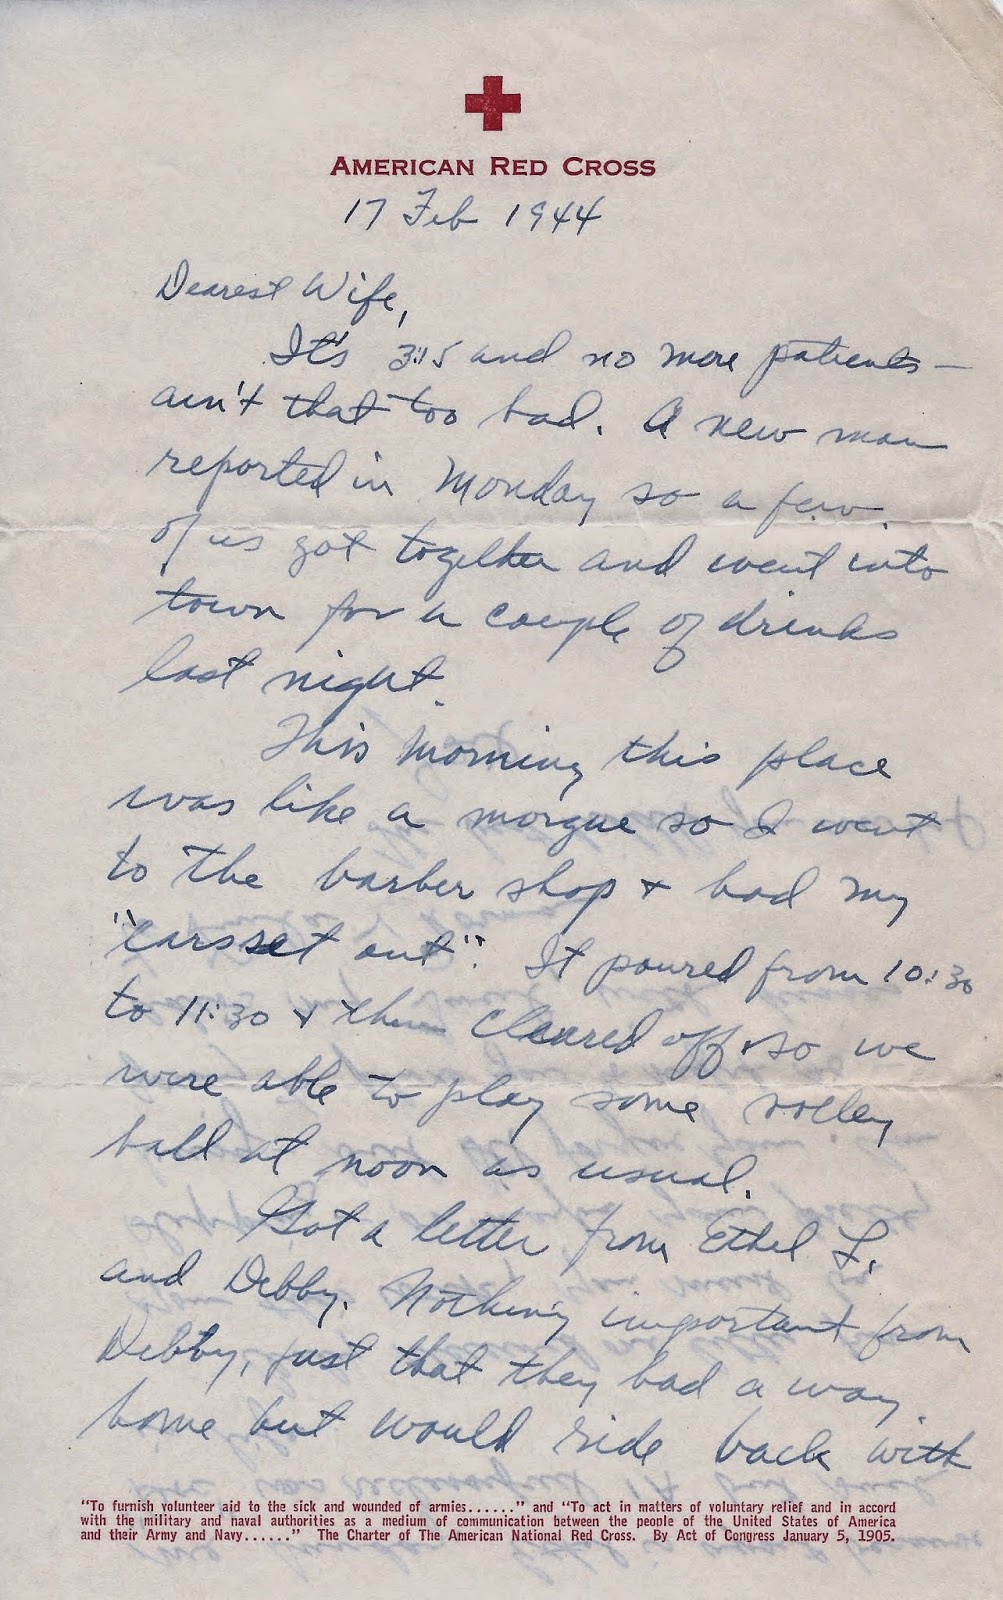 AMERICAN RED CROSS
17 Feb 1944
Dearest Wife,
It's 3:15 and no more patients —
ain't that too bad. A new man
reported in Monday so a few
of us got together and went into
town for a couple of drinks
last night.
This morning this place
was like a morgue so I went
to the barber shop + had my
"ears set out". It poured from 10:30
to 11:30 + then cleared off + so we
were able to play some volley
ball at noon as usual.
Got a letter from Ethel L.
and Debby. Nothing important from
Debby, just that they had a way
home but would ride back with
"To furnish volunteer aid to the sick and wounded of armies......" and "To act in matters of voluntary relief and in accord
with the military and naval authorities as a medium of communication between the people of the United States of America
and their Army and Navy......" The Charter of The American National Red Cross. By Act of Congress January 5, 1905.